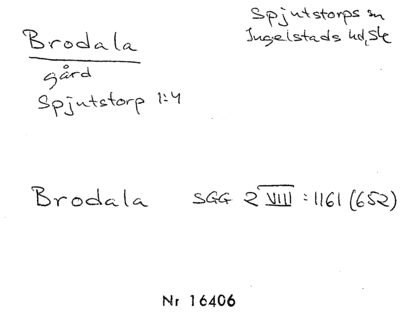 Brodala
gård
Spjutstorp 1:4
Spjutstorps sn
Ingelstads hd, Sk
Brodala SGG 2 VIII : 1161 (652)
Nr 16406